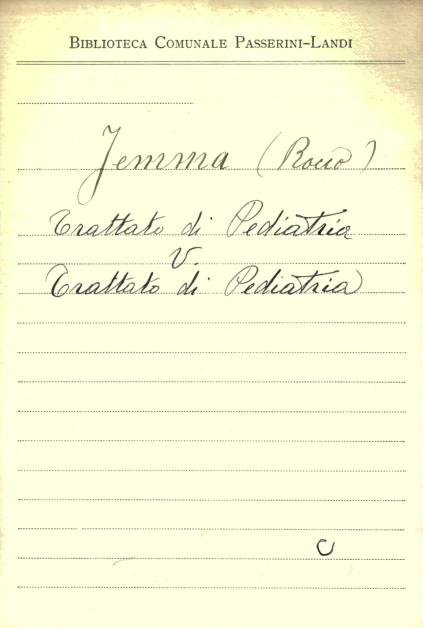 BIBLIOTECA COMUNALE PASSERINI-LANDI
Jemma (Rocco)
Trattato di Pediatria
V.
Trattato di Pediatria
C